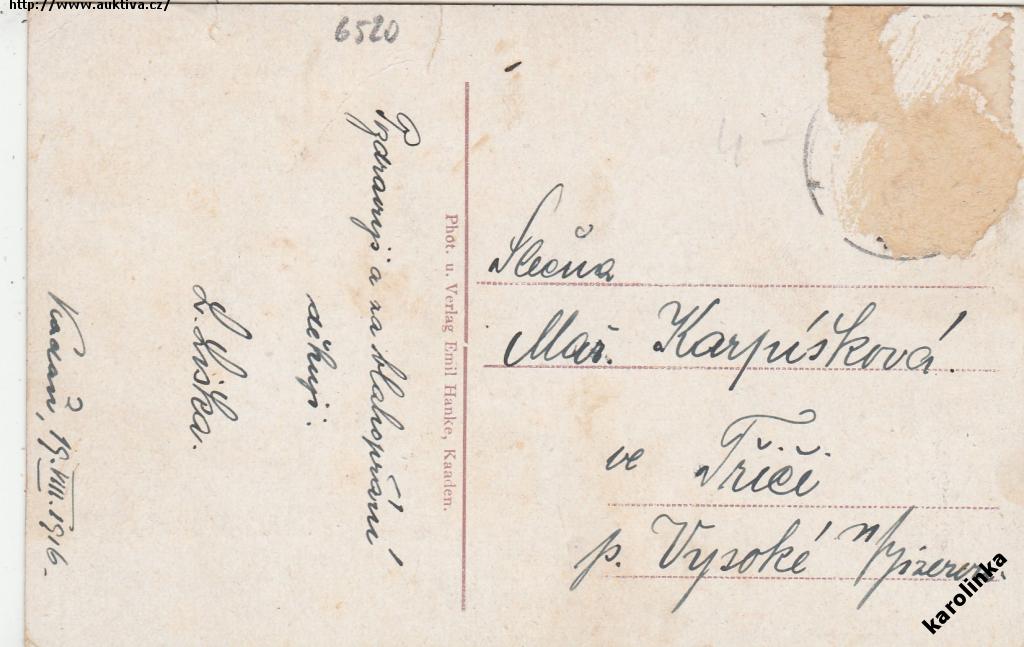 http://www.auktiva.cz/
6520
Pozdravuji a na blahopřání
děkuji:
L. Liška.
Kadaň, 19. VIII. 1916.
Phot. u. Verlag Emil Hanke, Kaaden.
4-
Slečna
Mař. Karpíšková.
ve Tříči
p. Vysoké n/Jizerou.
karolinka